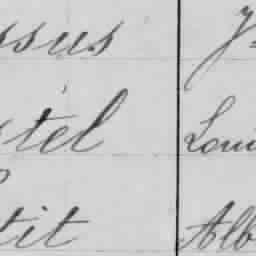 ssus J
stel Loui
tit Alb